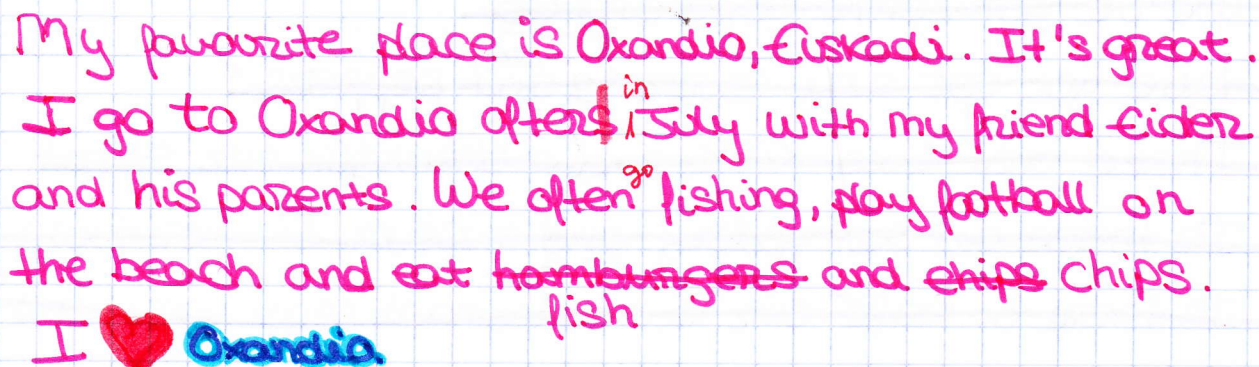 My favourite place is Oxandio, Euskadi. It's great.
I go to Oxandio often in July with my friend Eider
and his parents. We often go fishing, play football on
the beach and eat hamburgers and chips chips.
fish
I ❤ Oxandio.